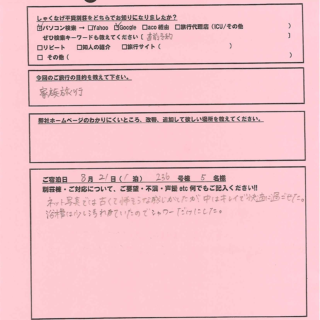 しゃくなげ平貸別荘をどちらでお知りになりましたか？
☑パソコン検索 → □Yahoo ☑Google □aco 経由 □旅行代理店 (ICU/その他 )
ぜひ検索キーワードも教えてください ( )
□リピート □知人の紹介 □旅行サイト ( )
□ その他 ( )
今回のご旅行の目的を教えて下さい。
家族旅行
弊社ホームページのわかりにくいところ、改善、追加して欲しい場所を教えてください。
ご宿泊日 8 月 21 日 (1 泊) 236 号棟 5 名様
別荘様・ご対応について、ご要望・不満・戸惑 etc 何でもご記入ください!!
ネット写真では古くて怖そうな感じがしたが、中はキレイで快適に過ごせた。
浴槽は少し汚れていたのでシャワーだけにした。